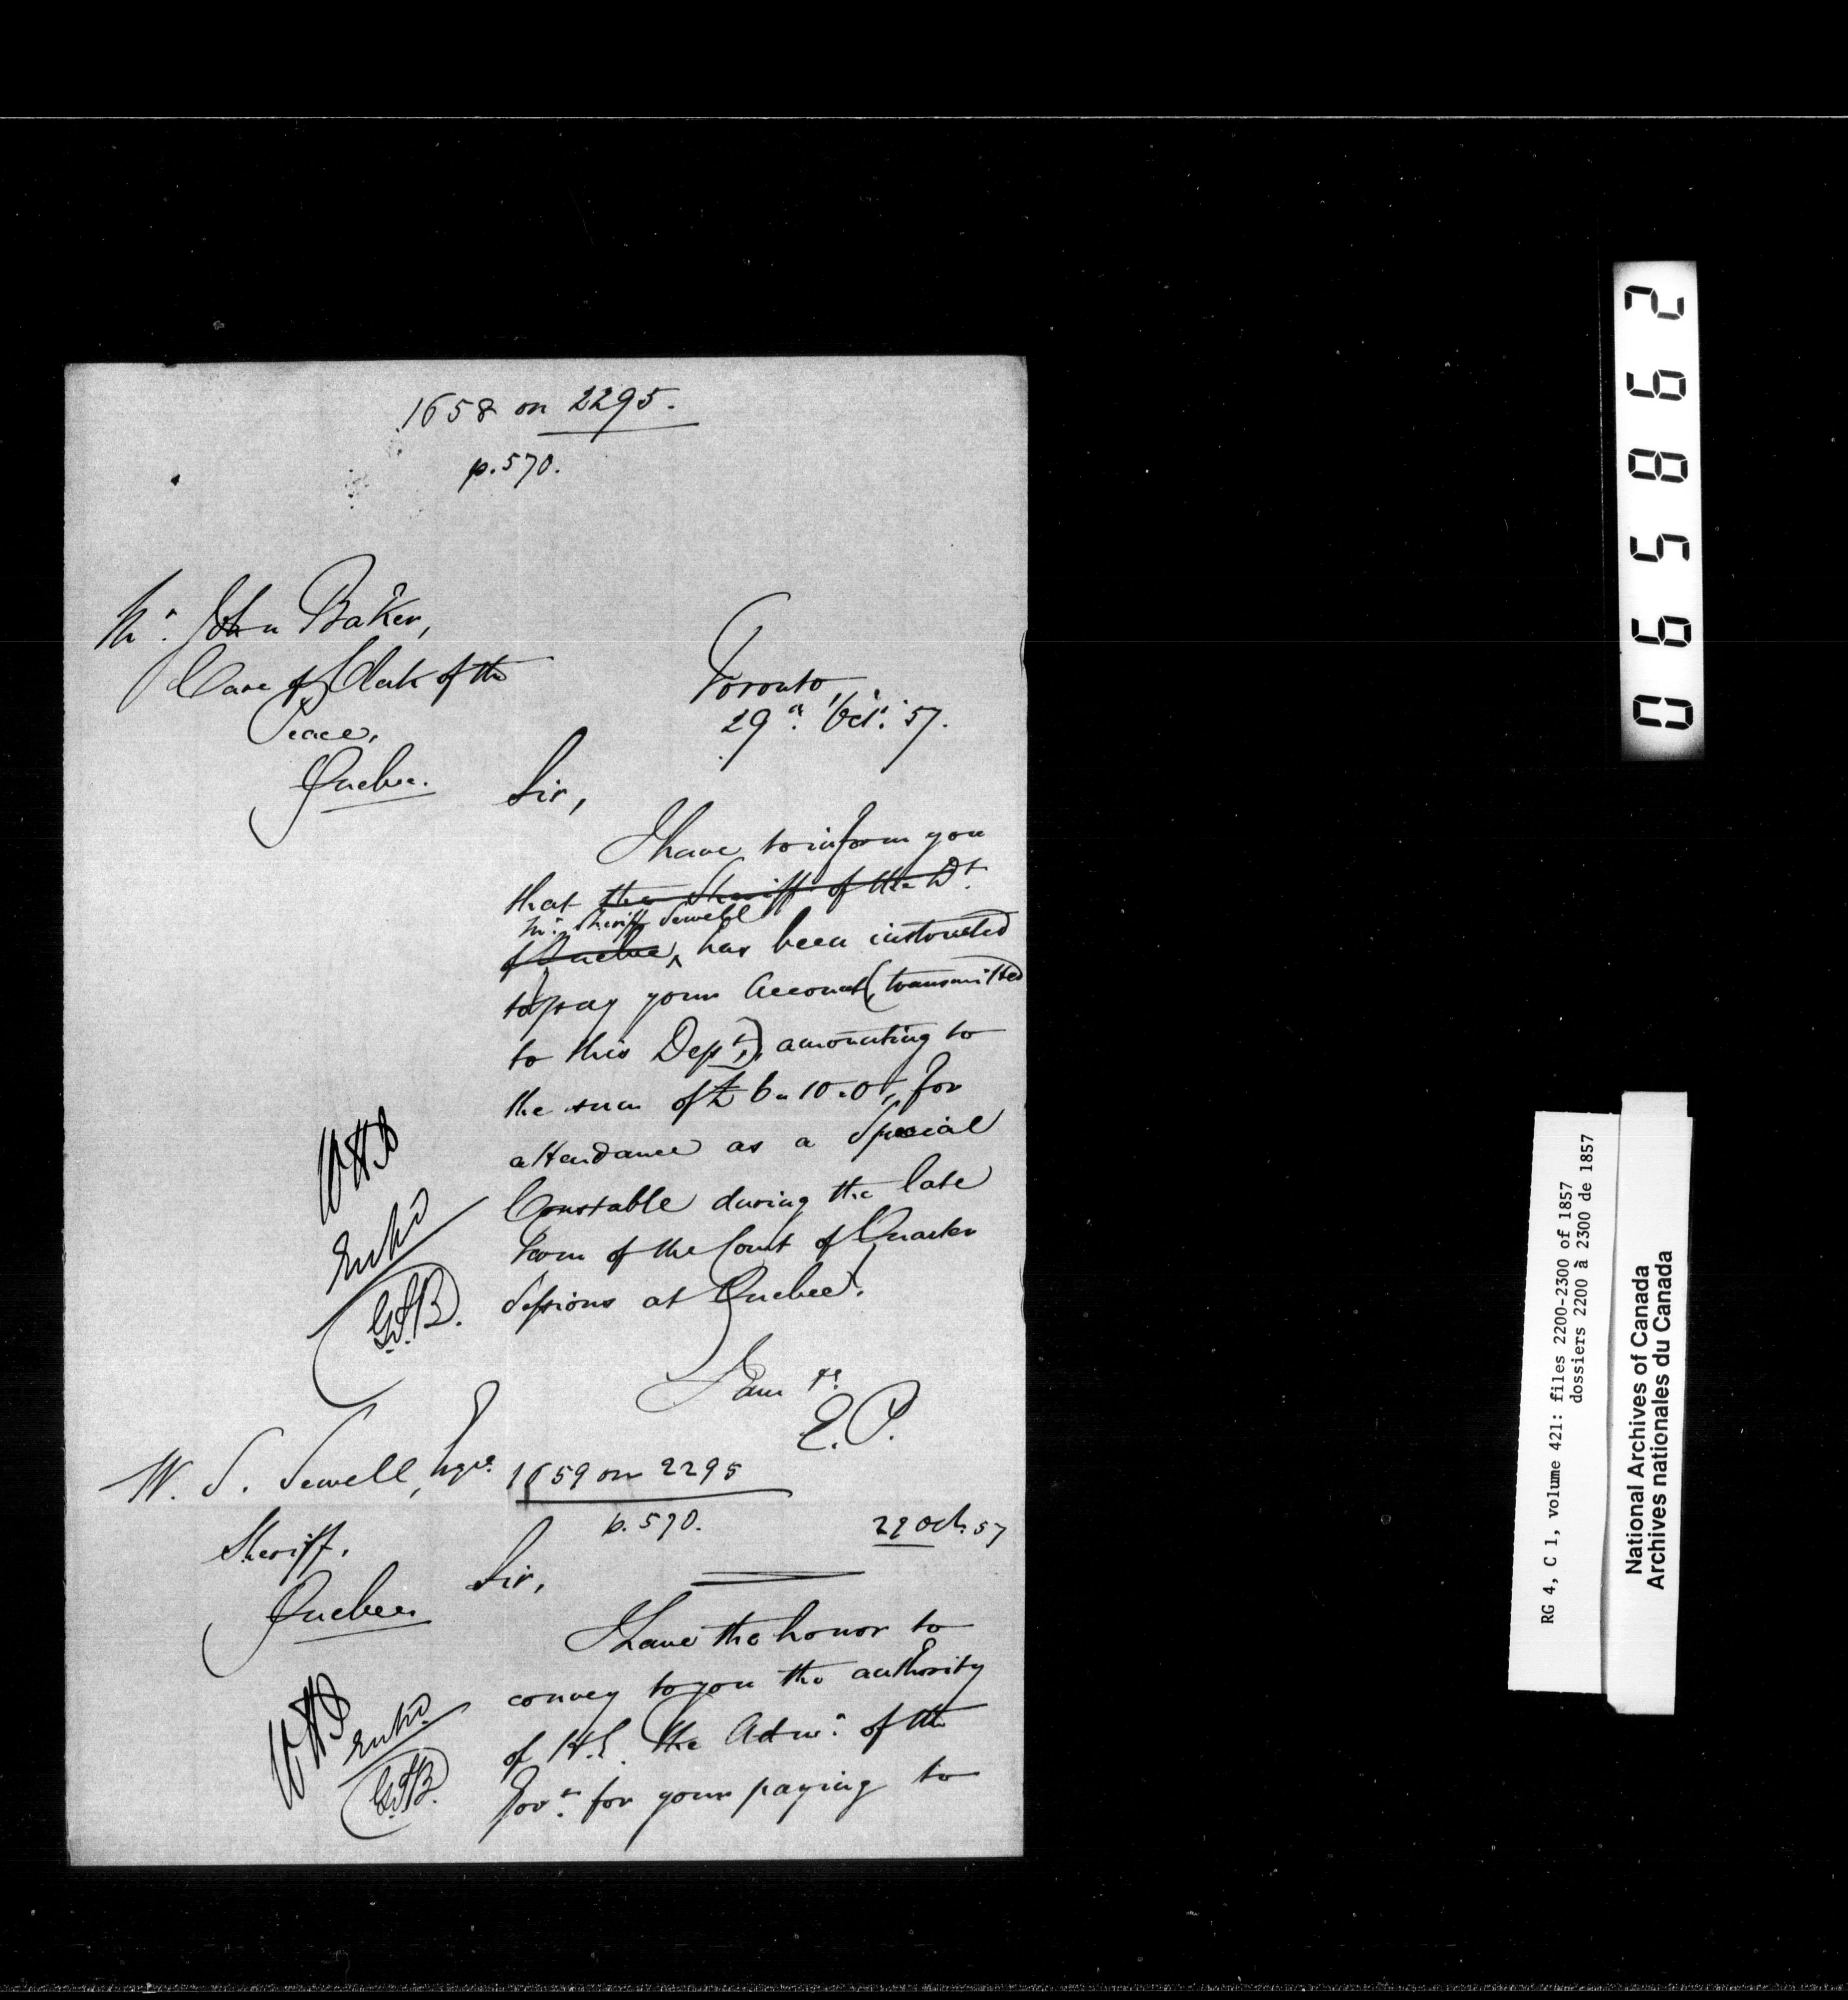 1658 on 2295.
p. 570.
Mr. John Baker,
Care of Clerk of the
Peace,
Quebec.
Toronto,
29th Octr. '57.
Sir,
I have to inform you
that the Sheriff of the Dt.
Mr. Sheriff Sewell
of Quebec, ^ has been instructed
to pay your Account (transmitted
to this Dept.), amounting to
the sum of £6.10.0, for
attendance as a Special
Constable during the late
Term of the Court of Quarter
Sessions at Quebec.
I am &c
E.P.
Entd
G.F.B.
W. S. Sewell, Esqre.
Sheriff,
Quebec
1659 on 2295
p. 570.
29 Oct. 57
Sir,
I have the honor to
convey to you the authority
of H.E. the Admr. of the
Govt. for your paying to
Entd.
G.F.B.
065862
RG 4, C 1, volume 421: files 2200-2300 of 1857
dossiers 2200 à 2300 de 1857
National Archives of Canada
Archives nationales du Canada